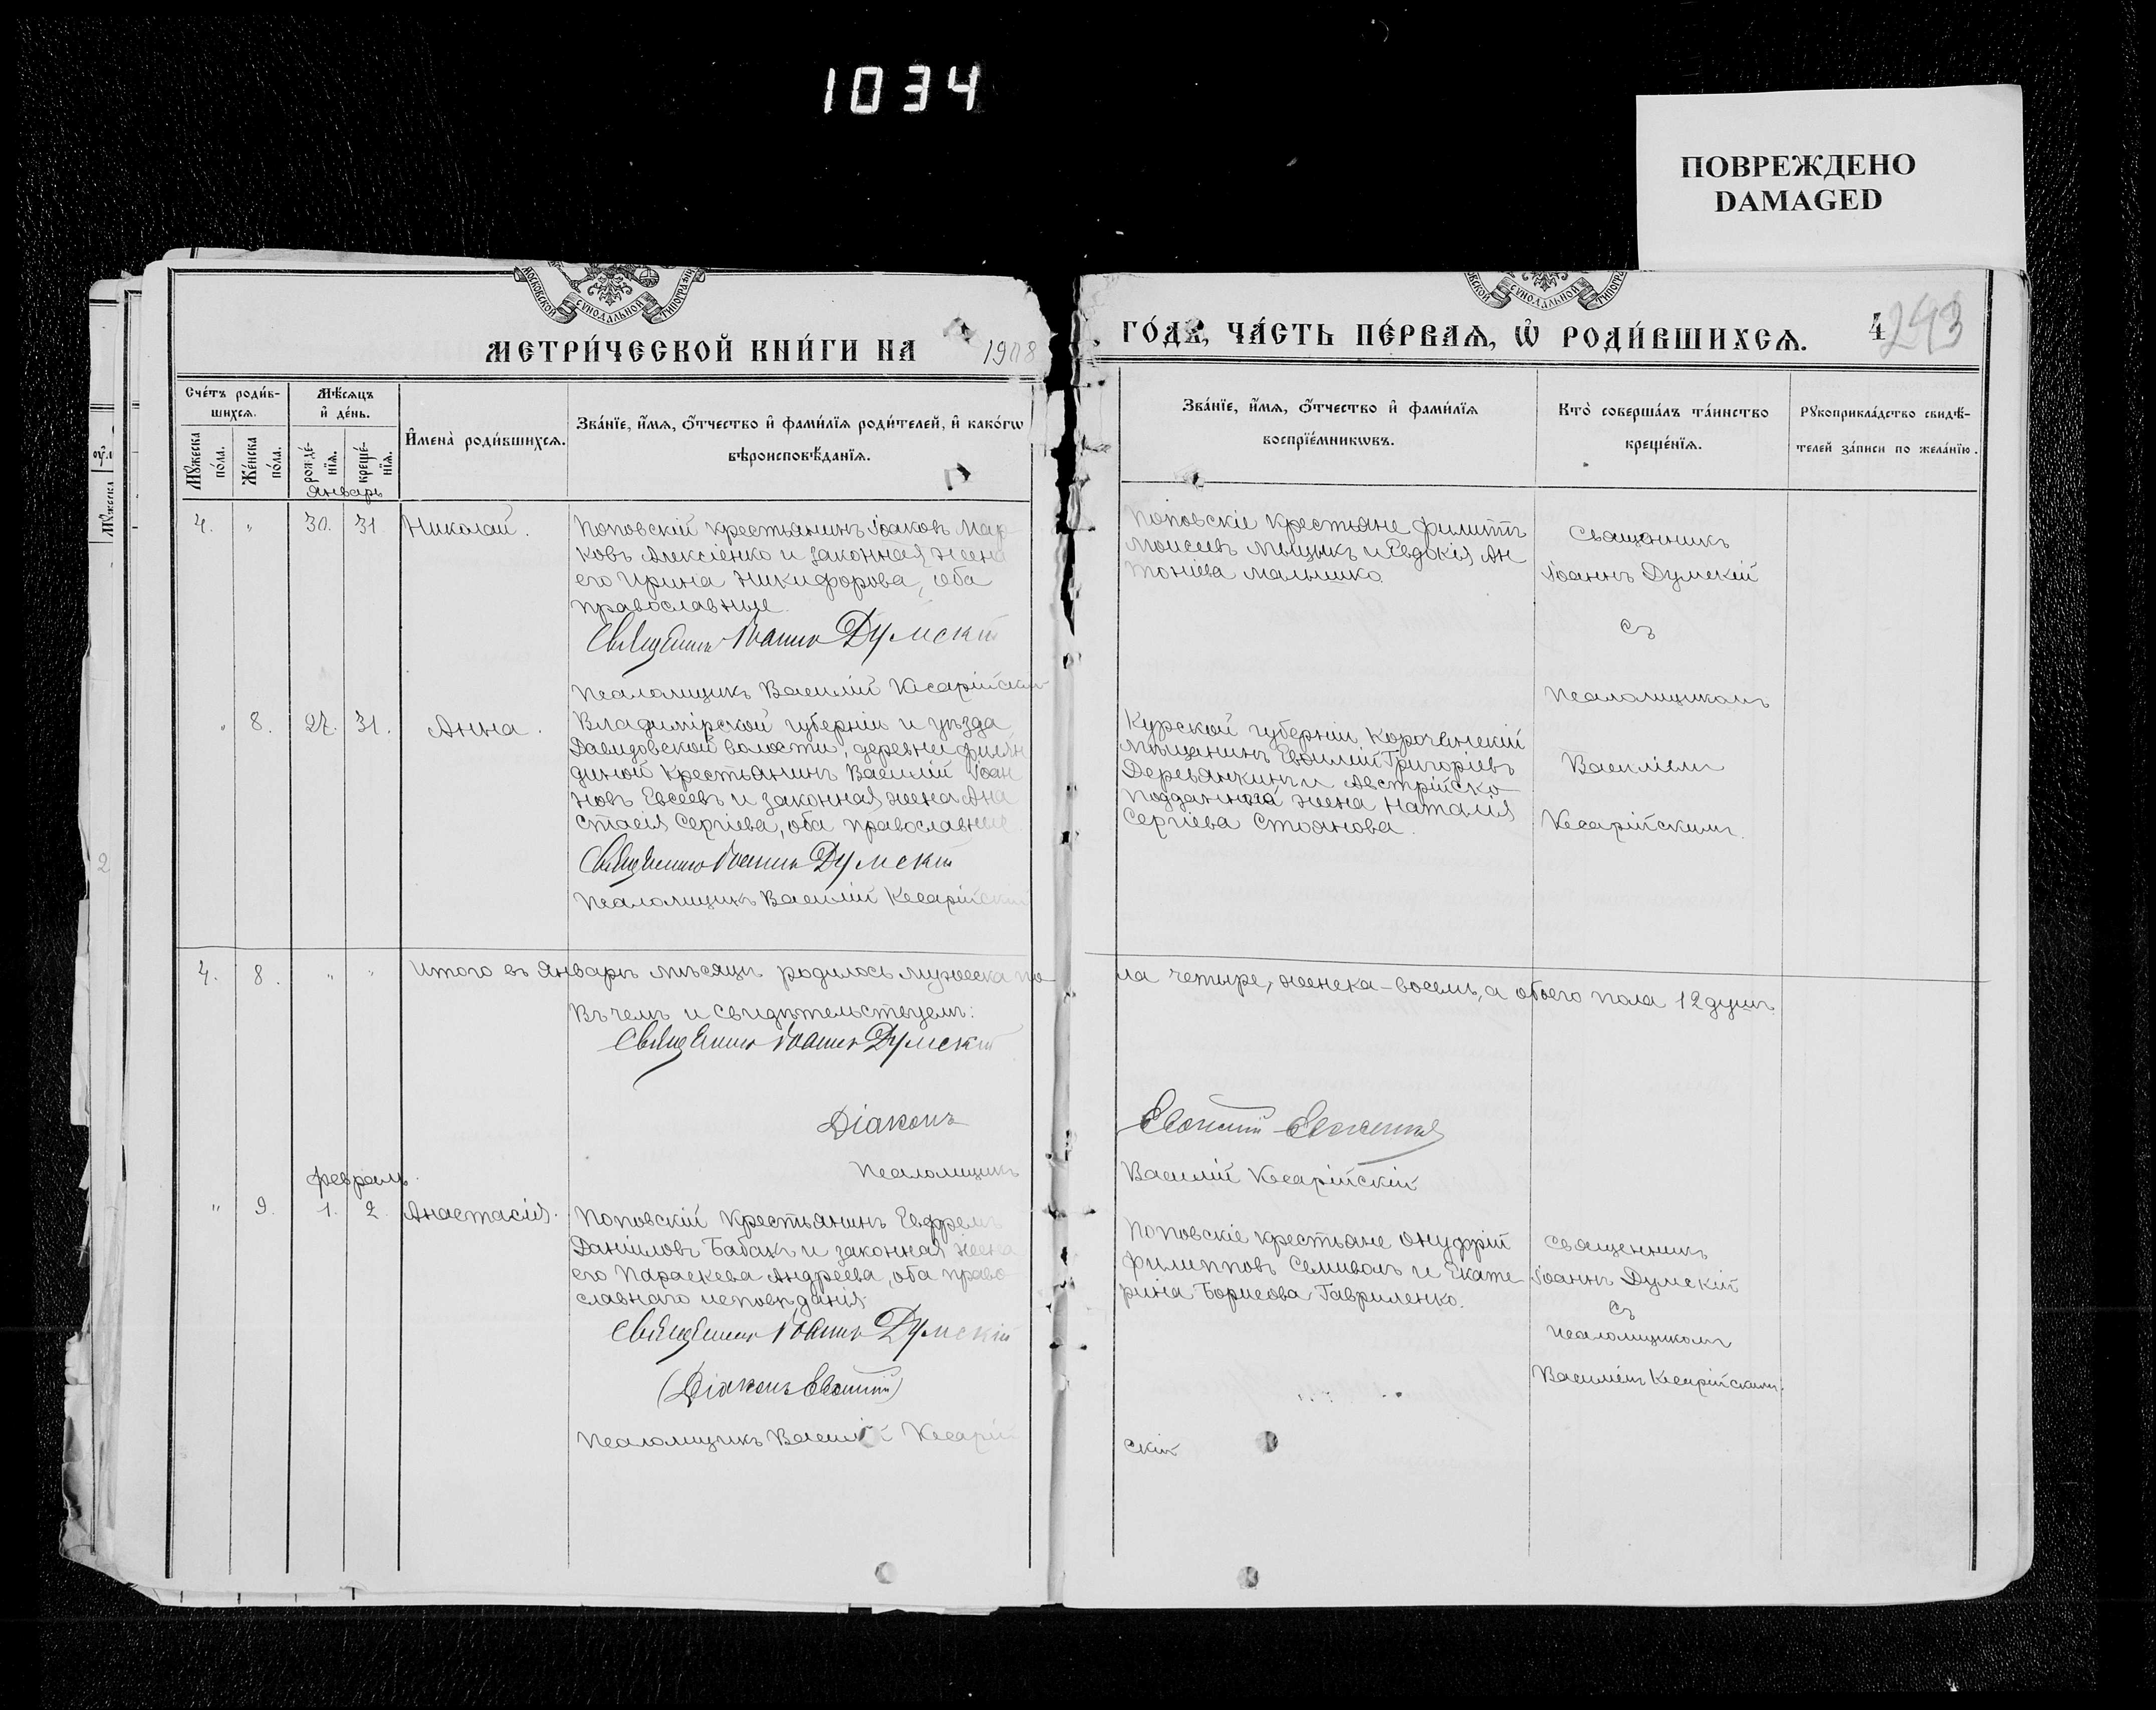 1034
ПОВРЕЖДЕНО
DAMAGED
МОСКОВСКОЙ СУНОДАЛЬНОЙ ТИПОГРАФІИ
МЕТРИ́ЧЕСКОЙ КНИ́ГИ НА 1908
ГО́ДꙊ, ЧА́СТЬ ПЕ́РВАѦ, Ѡ҆ РОДИ́ВШИХСѦ.
4
243
Сче́тъ роди́в-
шихсѧ.
Мꙋ́жеска
по́ла.
Же́нска
по́ла.
Мѣ́сѧцъ
и҆ де́нь.
рожде́-
нїѧ.
креще́-
нїѧ.
И҆мена̀ роди́вшихсѧ.
Зва́нїе, и҆́мѧ, ѻ҆́тчество и҆ фами́лїѧ роди́телей, и҆ како́гѡ
вѣроисповѣ́данїѧ.
Зва́нїе, и҆́мѧ, ѻ҆́тчество и҆ фами́лїѧ
воспрїе́мникѡвъ.
Кто̀ соверша́лъ та́инство
креще́нїѧ.
Рꙋкоприкла́дство свидѣ́-
телей за́писи по жела́нїю.
Январь
4. " 30. 31 Николай.
Поповскій крестьянинъ Іоаковъ Мар
ковъ Алексіенко и законная жена
его Ирина Никифорова, оба
православные.
Священникъ Іоаннъ Думскій
Псаломщикъ Василій Кесарійскій
Поповскіе крестьяне Филиппъ
Моисеевъ Мыцыкъ и Евдокія Ан
тоніева Малышко
Священникъ
Іоаннъ Думскій
съ
Псаломщикомъ
Василіемъ
Кесарійскимъ.
" 8. 27. 31. Анна.
Владимірской губерніи и уѣзда
Давидовской волости, деревни Филян
диной крестьянинъ Василій Іоан
новъ Евсеевъ и законная жена Ана
стасія Сергіева, оба православные.
Священникъ Іоаннъ Думскій
Псаломщикъ Василій Кесарійскій
Курской губерніи Корочанскій
мѣщанинъ Евфимій Григоріевъ
Деревянкинъ и Австрійско
подданнаго жена Наталія
Сергіева Стоянова.
4. 8. " " Итого въ Январѣ мѣсяцѣ родилось мужеска по
ла четыре, женска - восемь, а обоего пола 12 душъ.
Въ чемъ и свидѣтельствуемъ:
Священникъ Іоаннъ Думскій
Діаконъ
Псаломщикъ
Василій Кесарійскій
Февраль.
" 9. 1. 2. Анастасія.
Поповскій крестьянинъ Евфремъ
Даніиловъ Бабакъ и законная жена
его Параскева Андреева, оба право
славнаго исповѣданія
Священникъ Іоаннъ Думскій
(Діаконъ
Псаломщикъ Василій Кесарій
скій
Поповскіе крестьяне Онуфрій
Филипповъ Семиволъ и Екате
рина Борисова Гавриленко.
Священникъ
Іоаннъ Думскій
съ
псаломщикомъ
Василіемъ Кесарійскимъ.
2